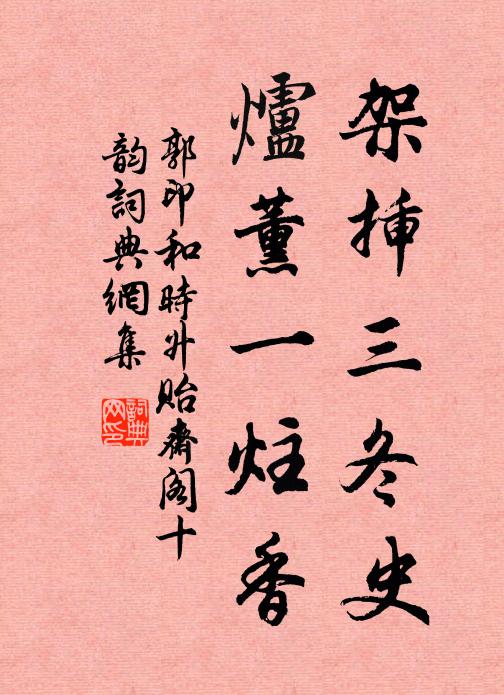 架插三冬史
爐薰一炷香
郭印和時升貽齋阁十
韵詞典網集
詞典網印